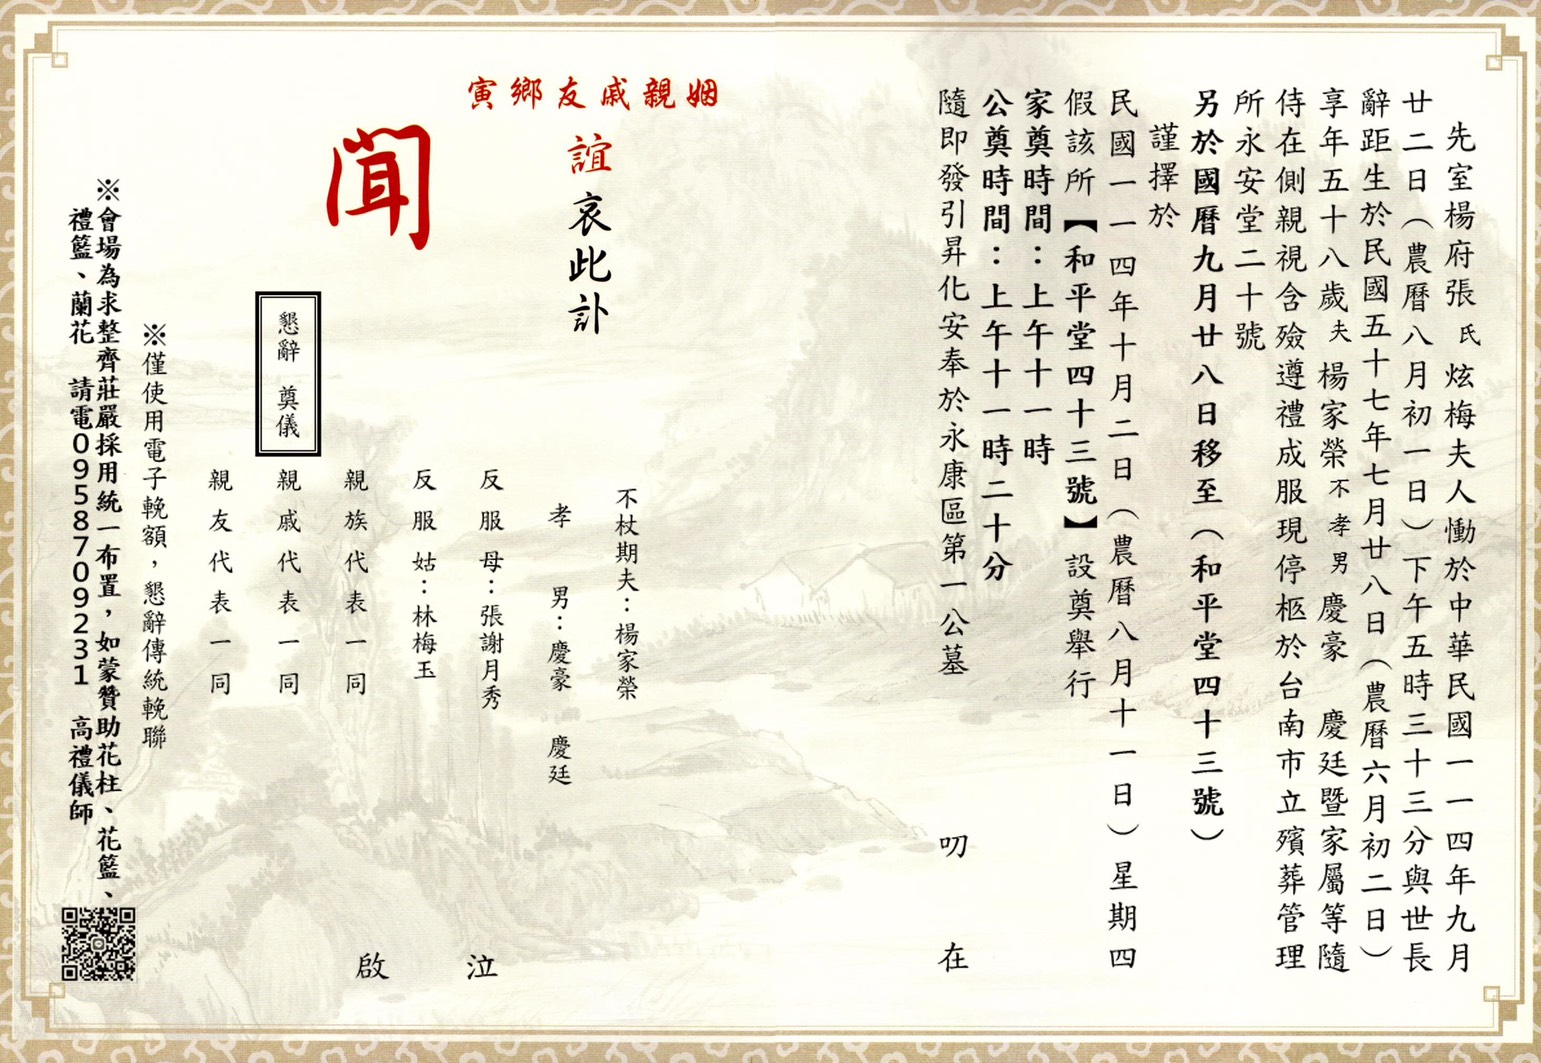 先室楊府張氏炫梅夫人慟於中華民國一一四年九月
廿二日（農曆八月初一日）下午五時三十三分與世長
辭距生於民國五十七年七月廿八日（農曆六月初二日）
享年五十八歲夫楊家榮不孝男慶豪 慶廷暨家屬等隨
侍在側親視含殮遵禮成服現停柩於台南市立殯葬管理
所永安堂二十號
另於國曆九月廿八日移至（和平堂四十三號）
謹擇於
民國一一四年十月二日（農曆八月十一日）星期四
假該所【和平堂四十三號】設奠舉行
家奠時間：上午十一時
公奠時間：上午十一時二十分
隨即發引昇化安奉於永康區第一公墓 叨在
姻親戚友鄉寅
誼哀此訃
聞
懇辭 奠儀
不杖期夫：楊家榮
孝男：慶豪 慶廷
反服母：張謝月秀
反服姑：林梅玉
親族代表一同
親戚代表一同
親友代表一同
泣
啟
※僅使用電子輓額，懇辭傳統輓聯
※會場為求整齊莊嚴採用統一布置，如蒙贊助花柱、花籃、
禮籃、蘭花 請電0958709231 高禮儀師